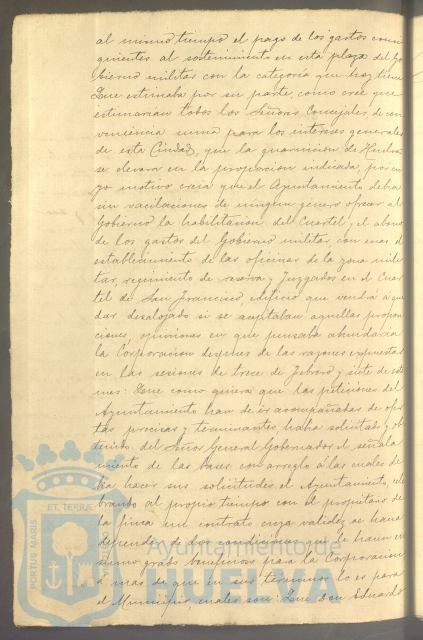 al mismo tiempo el pago de los gastos consi
guientes al sostenimiento en esta plaza del Go
bierno militar con la categoria que hoy tiene
Que estimaba por su parte, como cree que
estimarian todos los Señores Concejales, de con
veniencia suma para los intereses generales
de esta Ciudad, que la guarnicion de Huelva
se elevara en la proporcion indicada, por cu
yo motivo creia que el Ayuntamiento debia
sin vacilaciones de ningun genero ofrecer al
Gobierno la habilitacion del Cuartel y el abono
de los gastos del Gobierno militar, con mas el
establecimiento de las oficinas de la zona mili
tar, regimiento de reserva y Juzgados en el Cuar
tel de San Francisco, edificio que vendrá á que
dar desalojado si se aceptaban aquellas proposi
ciones, opiniones en que pensaba abundaria
la Corporacion despues de las razones expuestas
en las sesiones de trece de Febrero y siete de este
mes: Que como quiera que las peticiones del
Ayuntamiento han de ir acompañadas de ofer
tas precisas y terminantes, habia solicitado y ob
tenido del Señor General Gobernador el señala
miento de las bases con arreglo á las cuales de
bia hacer sus solicitudes el Ayuntamiento, cele
brando al propio tiempo con el propietario de
la finca un contrato cuya validez se hacia
depender de dos condiciones que le hacen en
sumo grado beneficioso para la Corporacion
á mas de que en sus terminos lo es para
el Municipio, cuales son: Que Don Eduardo
PORTUS MARIS
ET TERRÆ
Ayuntamiento de
HUELVA